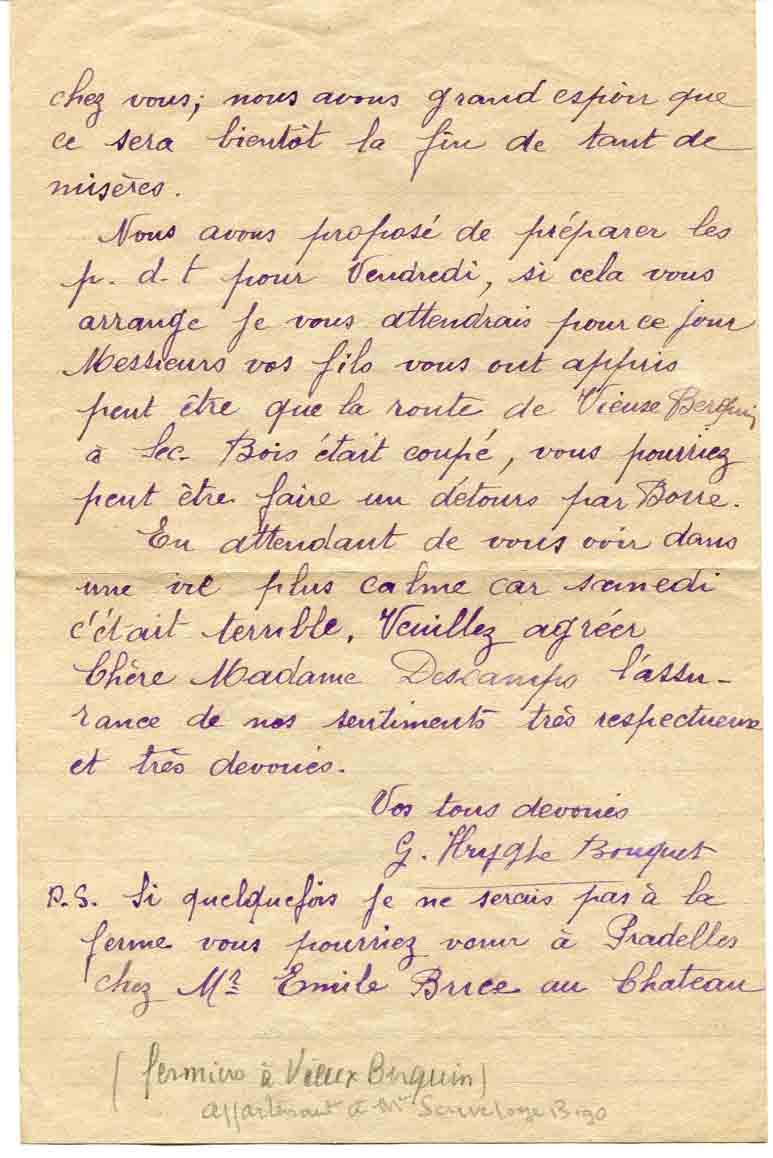 chez vous; nous avons grand espoir que
ce sera bientôt la fin de tant de
misères.
Nous avons proposé de préparer les
p. d. t pour Vendredi, si cela vous
arrange je vous attendrais pour ce jour
Messieurs vos fils vous ont appris
peut être que la route de Vieux Berquin
à Sec. Bois était coupé, vous pourriez
peut être faire un détours par Borre.
En attendant de vous voir dans
une vie plus calme car samedi
c'était terrible. Veuillez agréer
Chère Madame Descamps l'assu-
rance de nos sentiments très respectueux
et très devoués.
Vos tous devoués
G. Bouquet
P.S. Si quelquefois je ne serais pas à la
ferme vous pourriez venir à Pradelles
chez Mr Emile Brice au Chateau
(fermiers à Vieux Berquin)
appartenant à